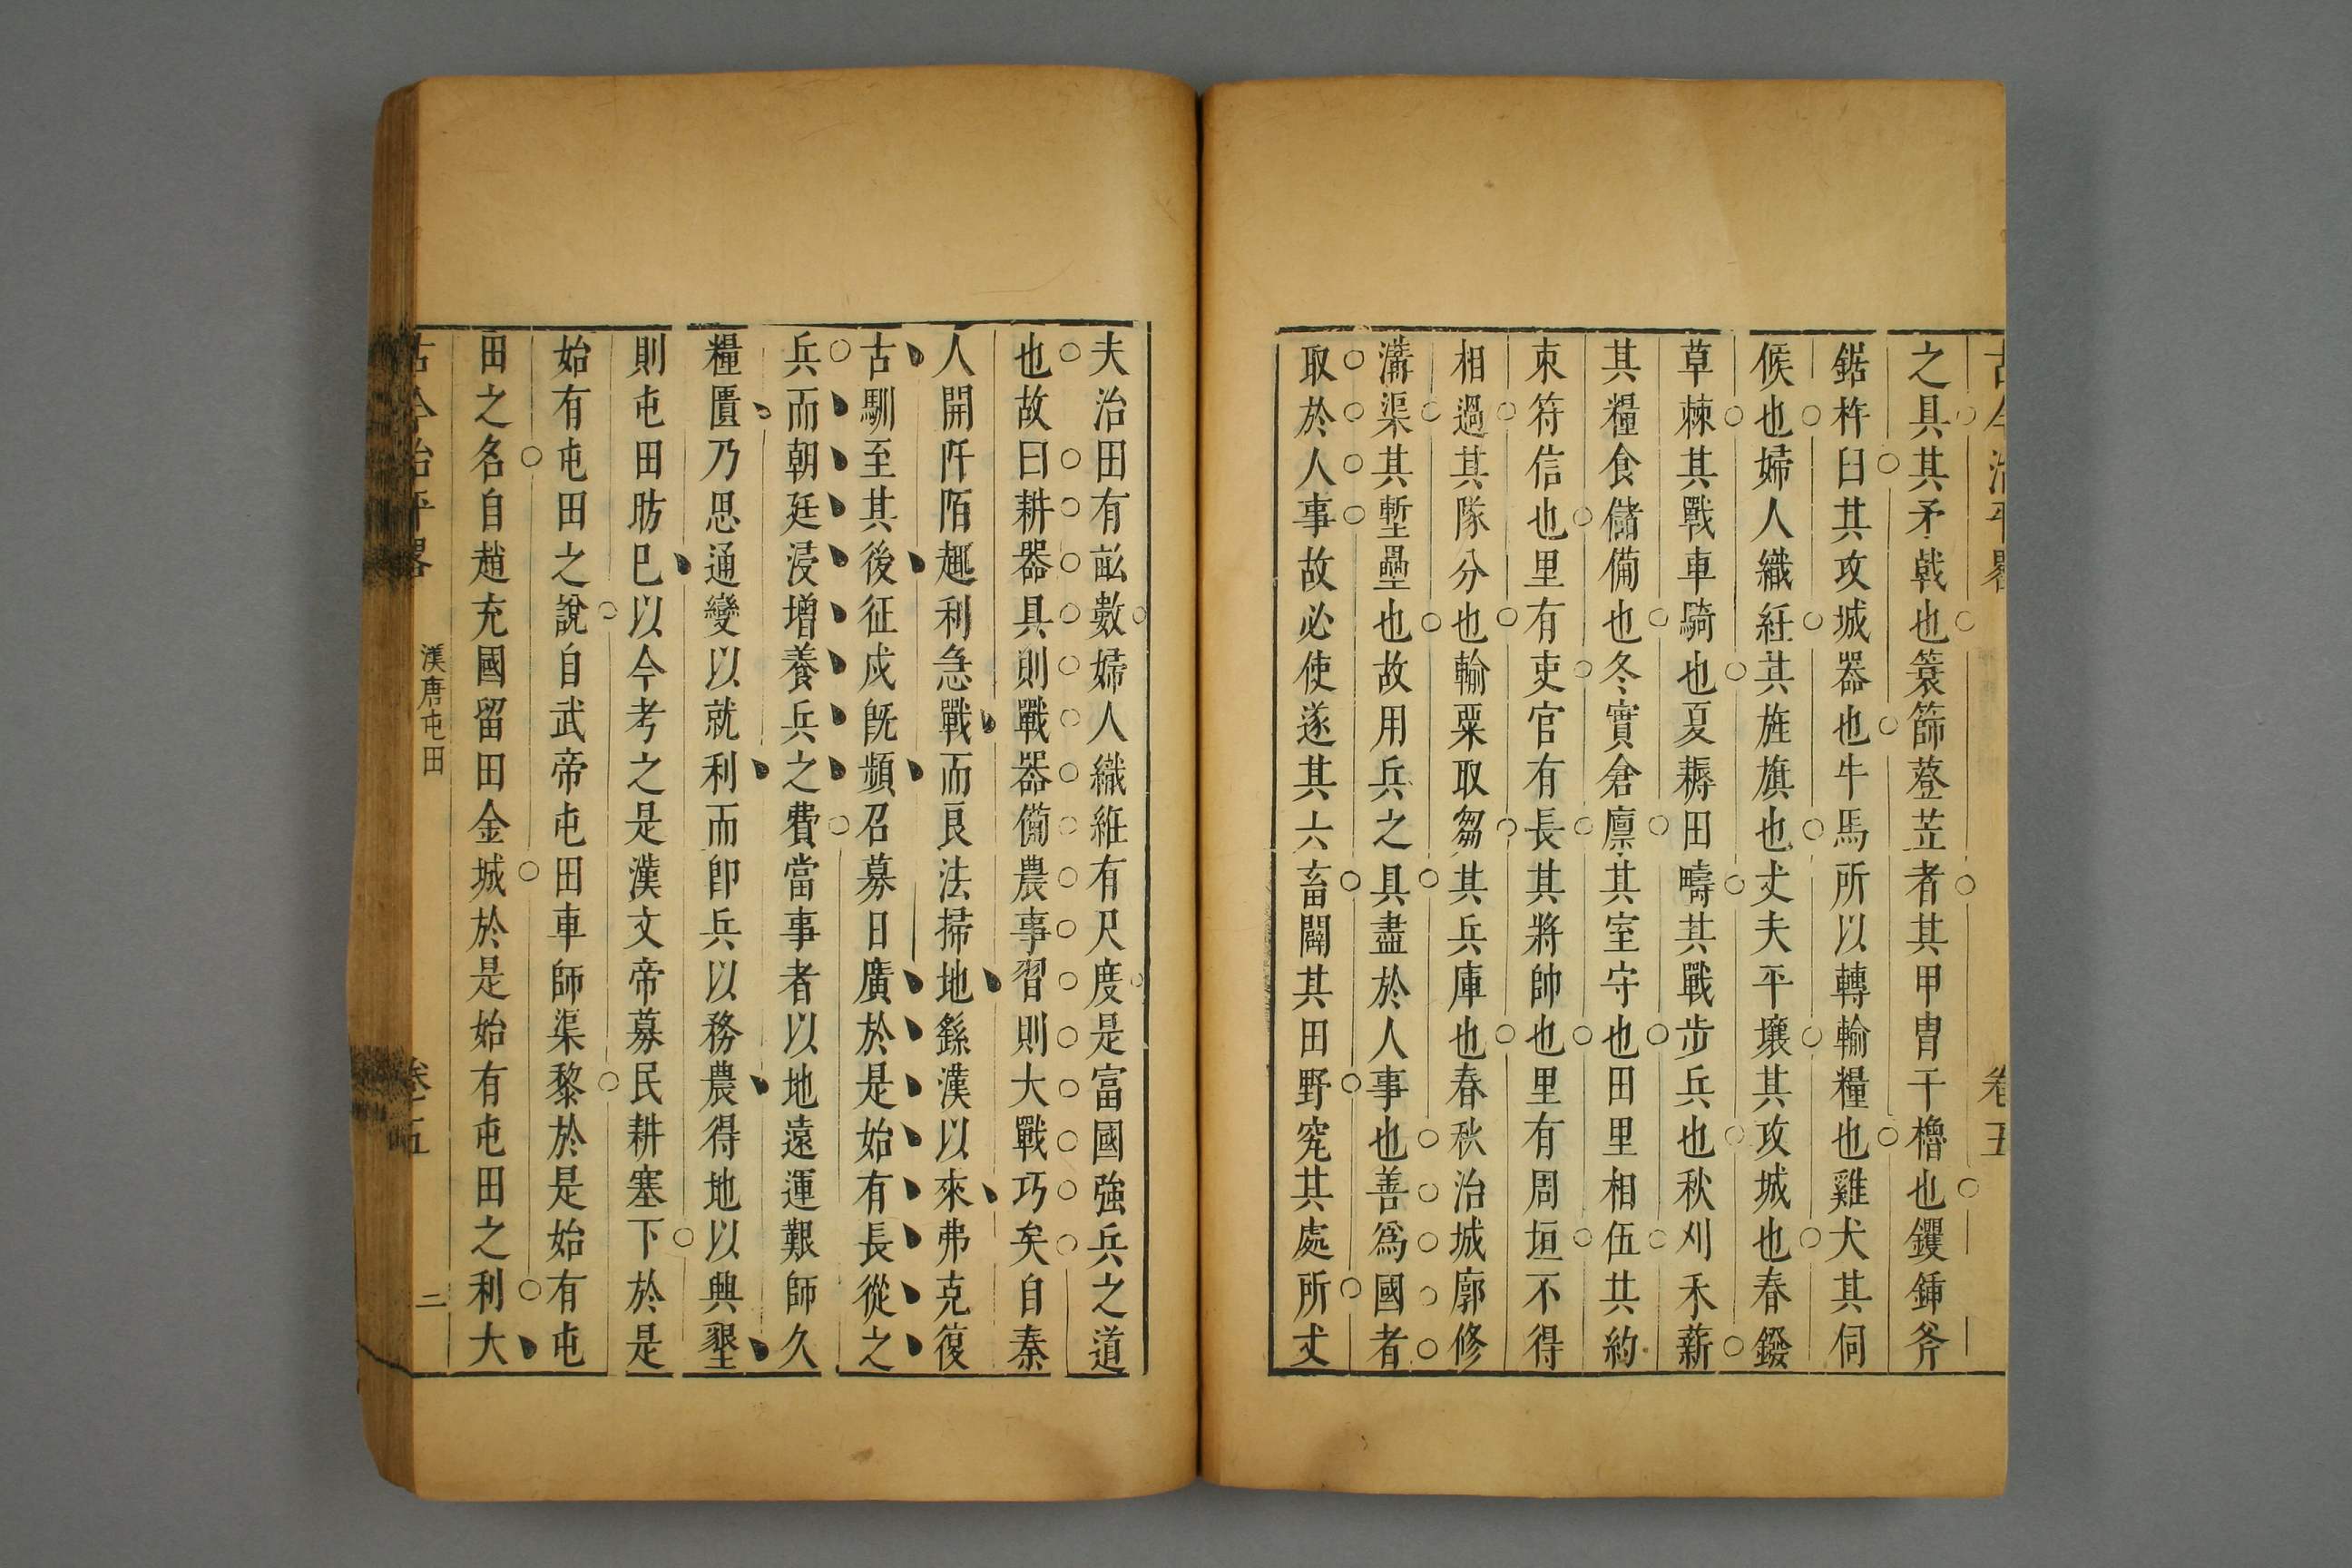 古今治平畧 卷五
之具其矛戟也簑篩蹬苙者其甲胄干櫓也钁鍤斧
鋸杵臼其攻城器也牛馬所以轉輸糧也雞犬其伺
候也婦人織紝其旌旗也丈夫平壤其攻城也春鏺
草棘其戰車騎也夏耨田疇其戰步兵也秋刈禾薪
其糧食儲備也冬實倉廩其室守也田里相伍其約
束符信也里有吏官有長其將帥也里有周垣不得
相過其隊分也輸粟取芻其兵庫也春秋治城廓修
溝渠其塹壘也故用兵之具盡於人事也善爲國者
取於人事故必使遂其六畜闢其田野究其處所丈
夫治田有畝數婦人織維有尺度是富國強兵之道
也故曰耕器具則戰器備農事習則大戰巧矣自秦
人開阡陌趣利急戰而良法掃地繇漢以來弗克復
古馴至其後征戍旣頻召募日廣於是始有長從之
兵而朝廷浸增養兵之費當事者以地遠運艱師久
糧匱乃思通變以就利而卽兵以務農得地以興墾
則屯田昉已以今考之是漢文帝募民耕塞下於是
始有屯田之說自武帝屯田車師渠黎於是始有屯
田之名自趙充國留田金城於是始有屯田之利大
古今治平畧 漢唐屯田 卷五 二